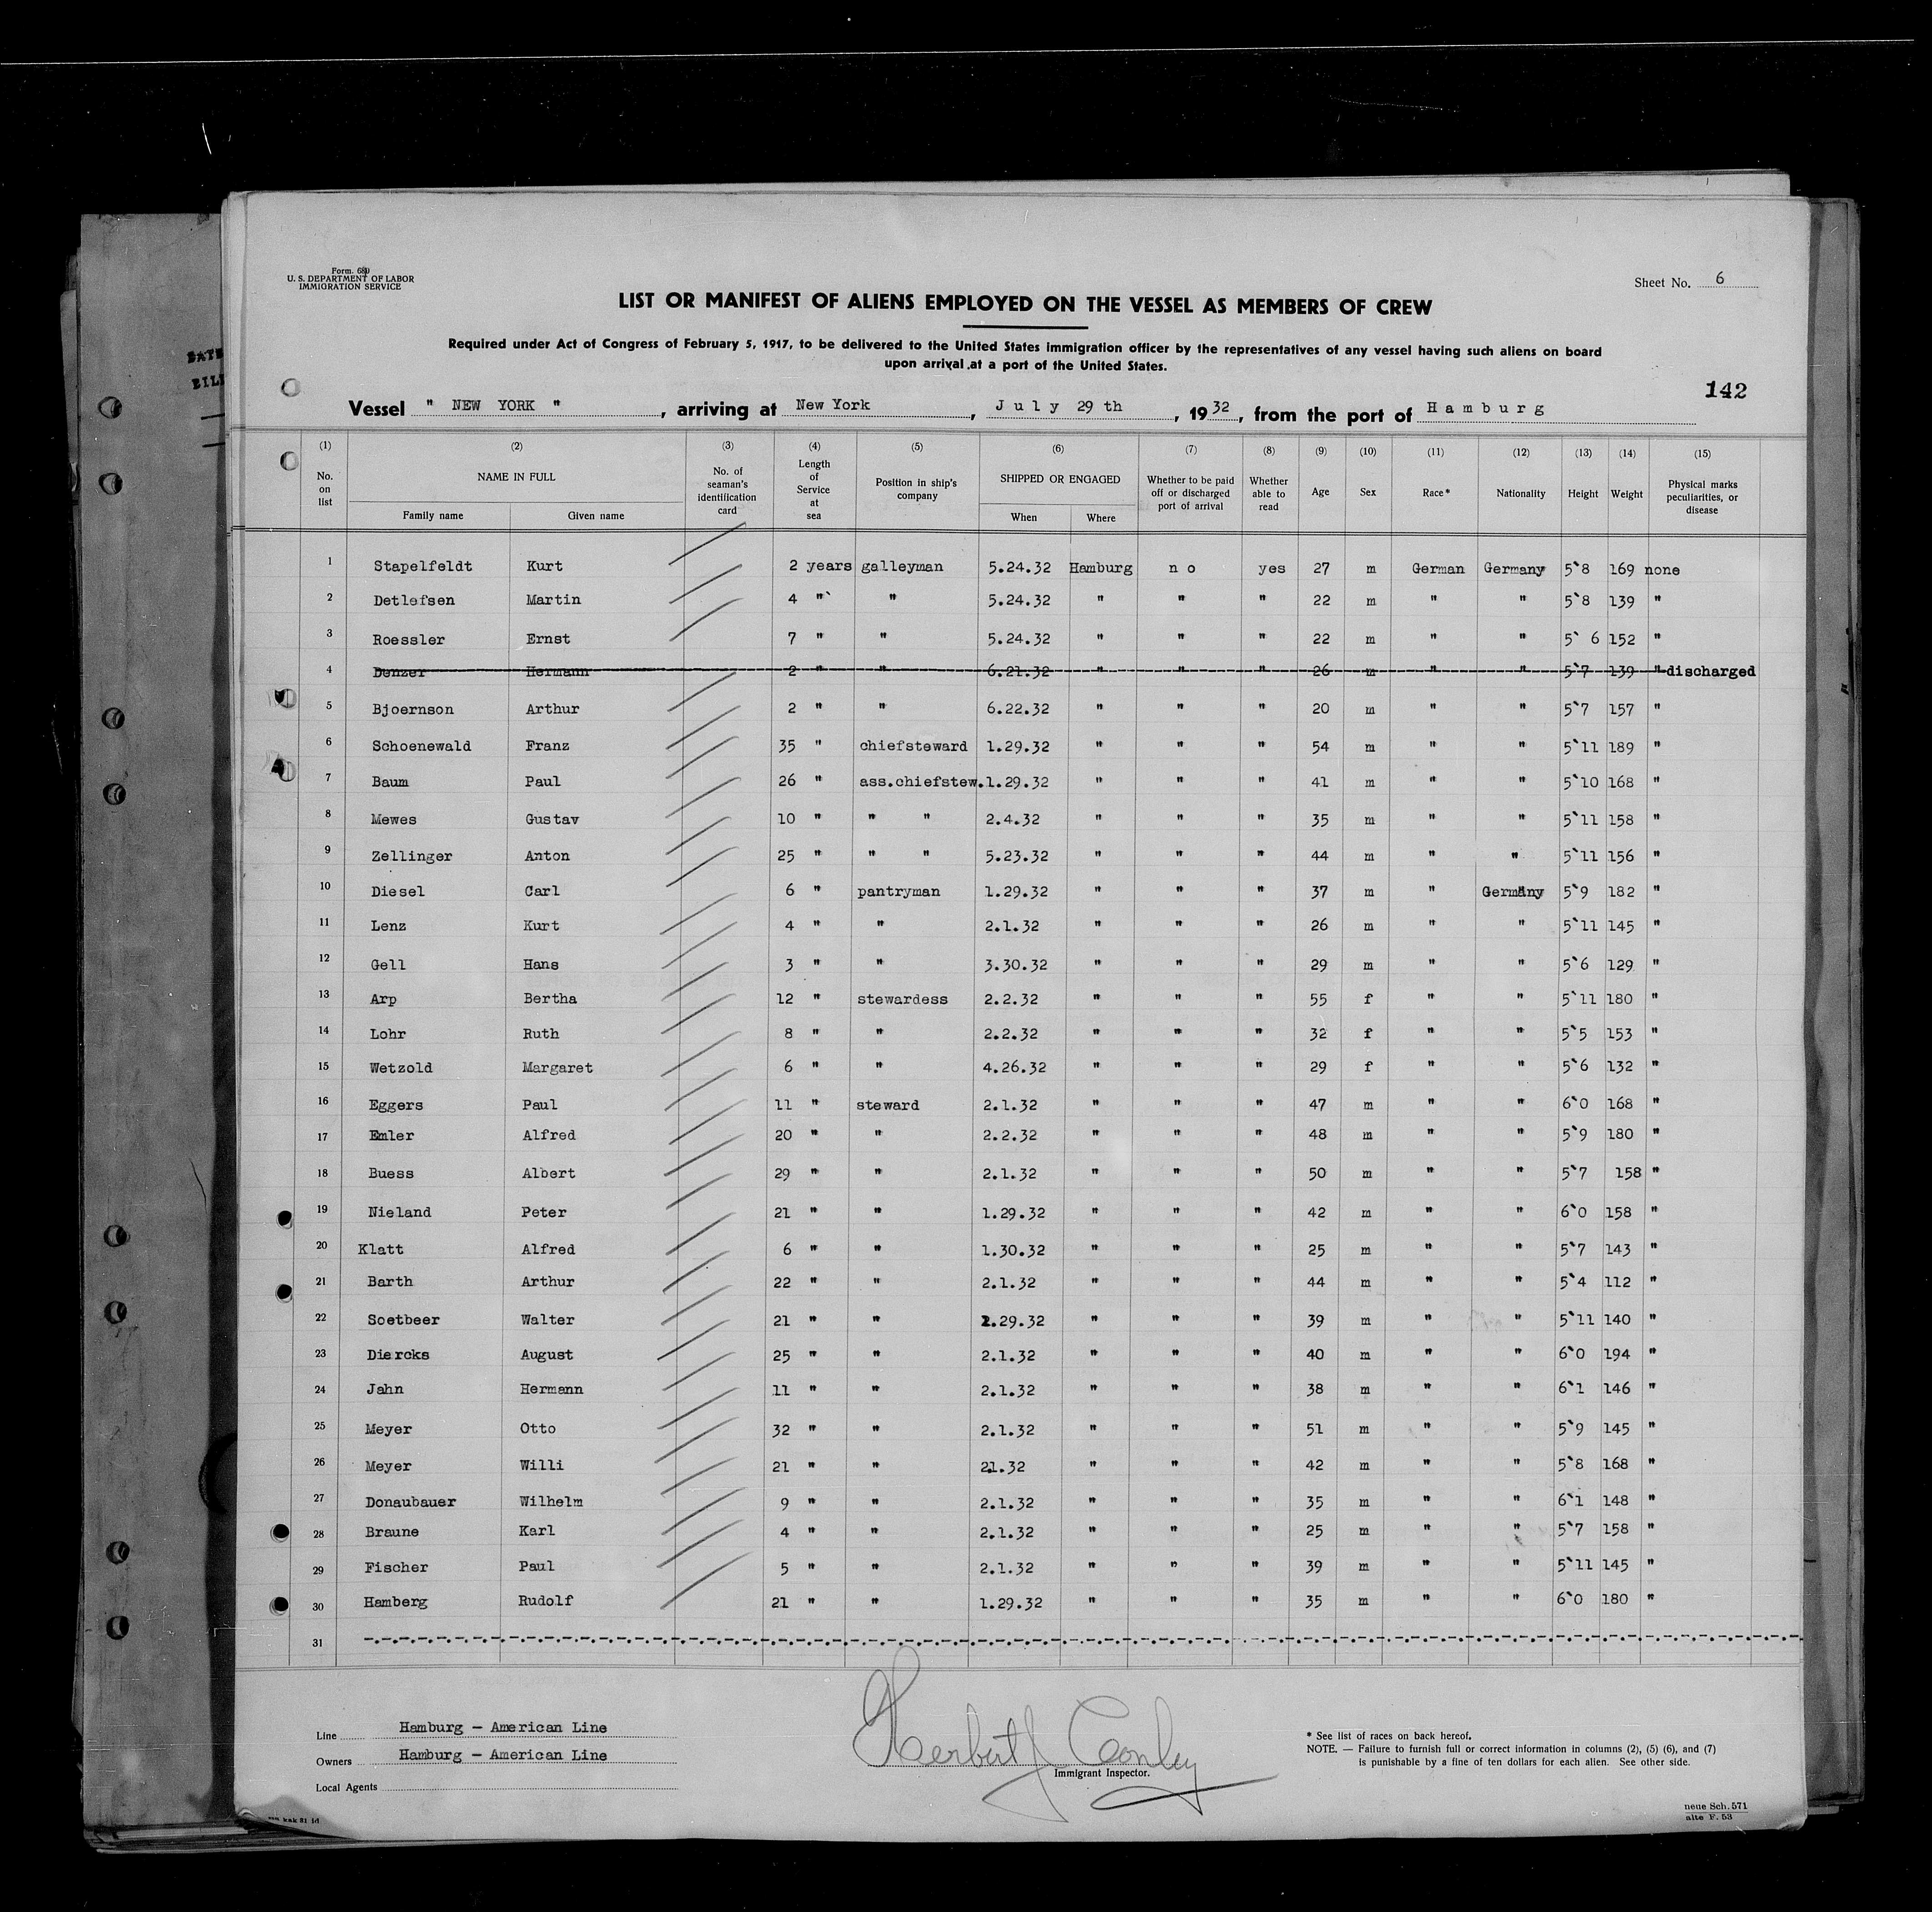 Form. 680
U. S. DEPARTMENT OF LABOR
IMMIGRATION SERVICE
Sheet No. 6
LIST OR MANIFEST OF ALIENS EMPLOYED ON THE VESSEL AS MEMBERS OF CREW
Required under Act of Congress of February 5, 1917, to be delivered to the United States immigration officer by the representatives of any vessel having such aliens on board
upon arrival at a port of the United States.
142
Vessel " NEW YORK ", arriving at New York, July 29 th, 1932, from the port of Hamburg
(1) (2) (3) (4) (5) (6) (7) (8) (9) (10) (11) (12) (13) (14) (15)
No. on list NAME IN FULL Family name Given name No. of seaman's identification card Length of Service at sea Position in ship's company SHIPPED OR ENGAGED When Where Whether to be paid off or discharged port of arrival Whether able to read Age Sex Race* Nationality Height Weight Physical marks peculiarities, or disease
1 Stapelfeldt Kurt 2 years galleyman 5.24.32 Hamburg no yes 27 m German Germany 5`8 169 none
2 Detlefsen Martin 4 " " 5.24.32 " " " 22 m " " 5`8 139 "
3 Roessler Ernst 7 " " 5.24.32 " " " 22 m " " 5` 6 152 "
4 Denzer Hermann 2 " " 6.21.32 " " " 26 m " " 5`7 139 " discharged
5 Bjoernson Arthur 2 " " 6.22.32 " " " 20 m " " 5`7 157 "
6 Schoenewald Franz 35 " chiefsteward 1.29.32 " " " 54 m " " 5`11 189 "
7 Baum Paul 26 " ass.chiefstew. 1.29.32 " " " 41 m " " 5`10 168 "
8 Mewes Gustav 10 " " " 2.4.32 " " " 35 m " " 5`11 158 "
9 Zellinger Anton 25 " " " 5.23.32 " " " 44 m " " 5`11 156 "
10 Diesel Carl 6 " pantryman 1.29.32 " " " 37 m " Germany 5`9 182 "
11 Lenz Kurt 4 " " 2.1.32 " " " 26 m " " 5`11 145 "
12 Gell Hans 3 " " 3.30.32 " " " 29 m " " 5`6 129 "
13 Arp Bertha 12 " stewardess 2.2.32 " " " 55 f " " 5`11 180 "
14 Lohr Ruth 8 " " 2.2.32 " " " 32 f " " 5`5 153 "
15 Wetzold Margaret 6 " " 4.26.32 " " " 29 f " " 5`6 132 "
16 Eggers Paul 11 " steward 2.1.32 " " " 47 m " " 6`0 168 "
17 Emler Alfred 20 " " 2.2.32 " " " 48 m " " 5`9 180 "
18 Buess Albert 29 " " 2.1.32 " " " 50 m " " 5`7 158 "
19 Nieland Peter 21 " " 1.29.32 " " " 42 m " " 6`0 158 "
20 Klatt Alfred 6 " " 1.30.32 " " " 25 m " " 5`7 143 "
21 Barth Arthur 22 " " 2.1.32 " " " 44 m " " 5`4 112 "
22 Soetbeer Walter 21 " " 1.29.32 " " " 39 m " " 5`11 140 "
23 Diercks August 25 " " 2.1.32 " " " 40 m " " 6`0 194 "
24 Jahn Hermann 11 " " 2.1.32 " " " 38 m " " 6`1 146 "
25 Meyer Otto 32 " " 2.1.32 " " " 51 m " " 5`9 145 "
26 Meyer Willi 21 " " 21.32 " " " 42 m " " 5`8 168 "
27 Donaubauer Wilhelm 9 " " 2.1.32 " " " 35 m " " 6`1 148 "
28 Braune Karl 4 " " 2.1.32 " " " 25 m " " 5`7 158 "
29 Fischer Paul 5 " " 2.1.32 " " " 39 m " " 5`11 145 "
30 Hamberg Rudolf 21 " " 1.29.32 " " " 35 m " " 6`0 180 "
31
Line Hamburg - American Line
Owners Hamburg - American Line
Local Agents
Herbert J Conley
Immigrant Inspector.
* See list of races on back hereof.
NOTE. — Failure to furnish full or correct information in columns (2), (5) (6), and (7)
is punishable by a fine of ten dollars for each alien. See other side.
neue Sch. 571
alte F. 53